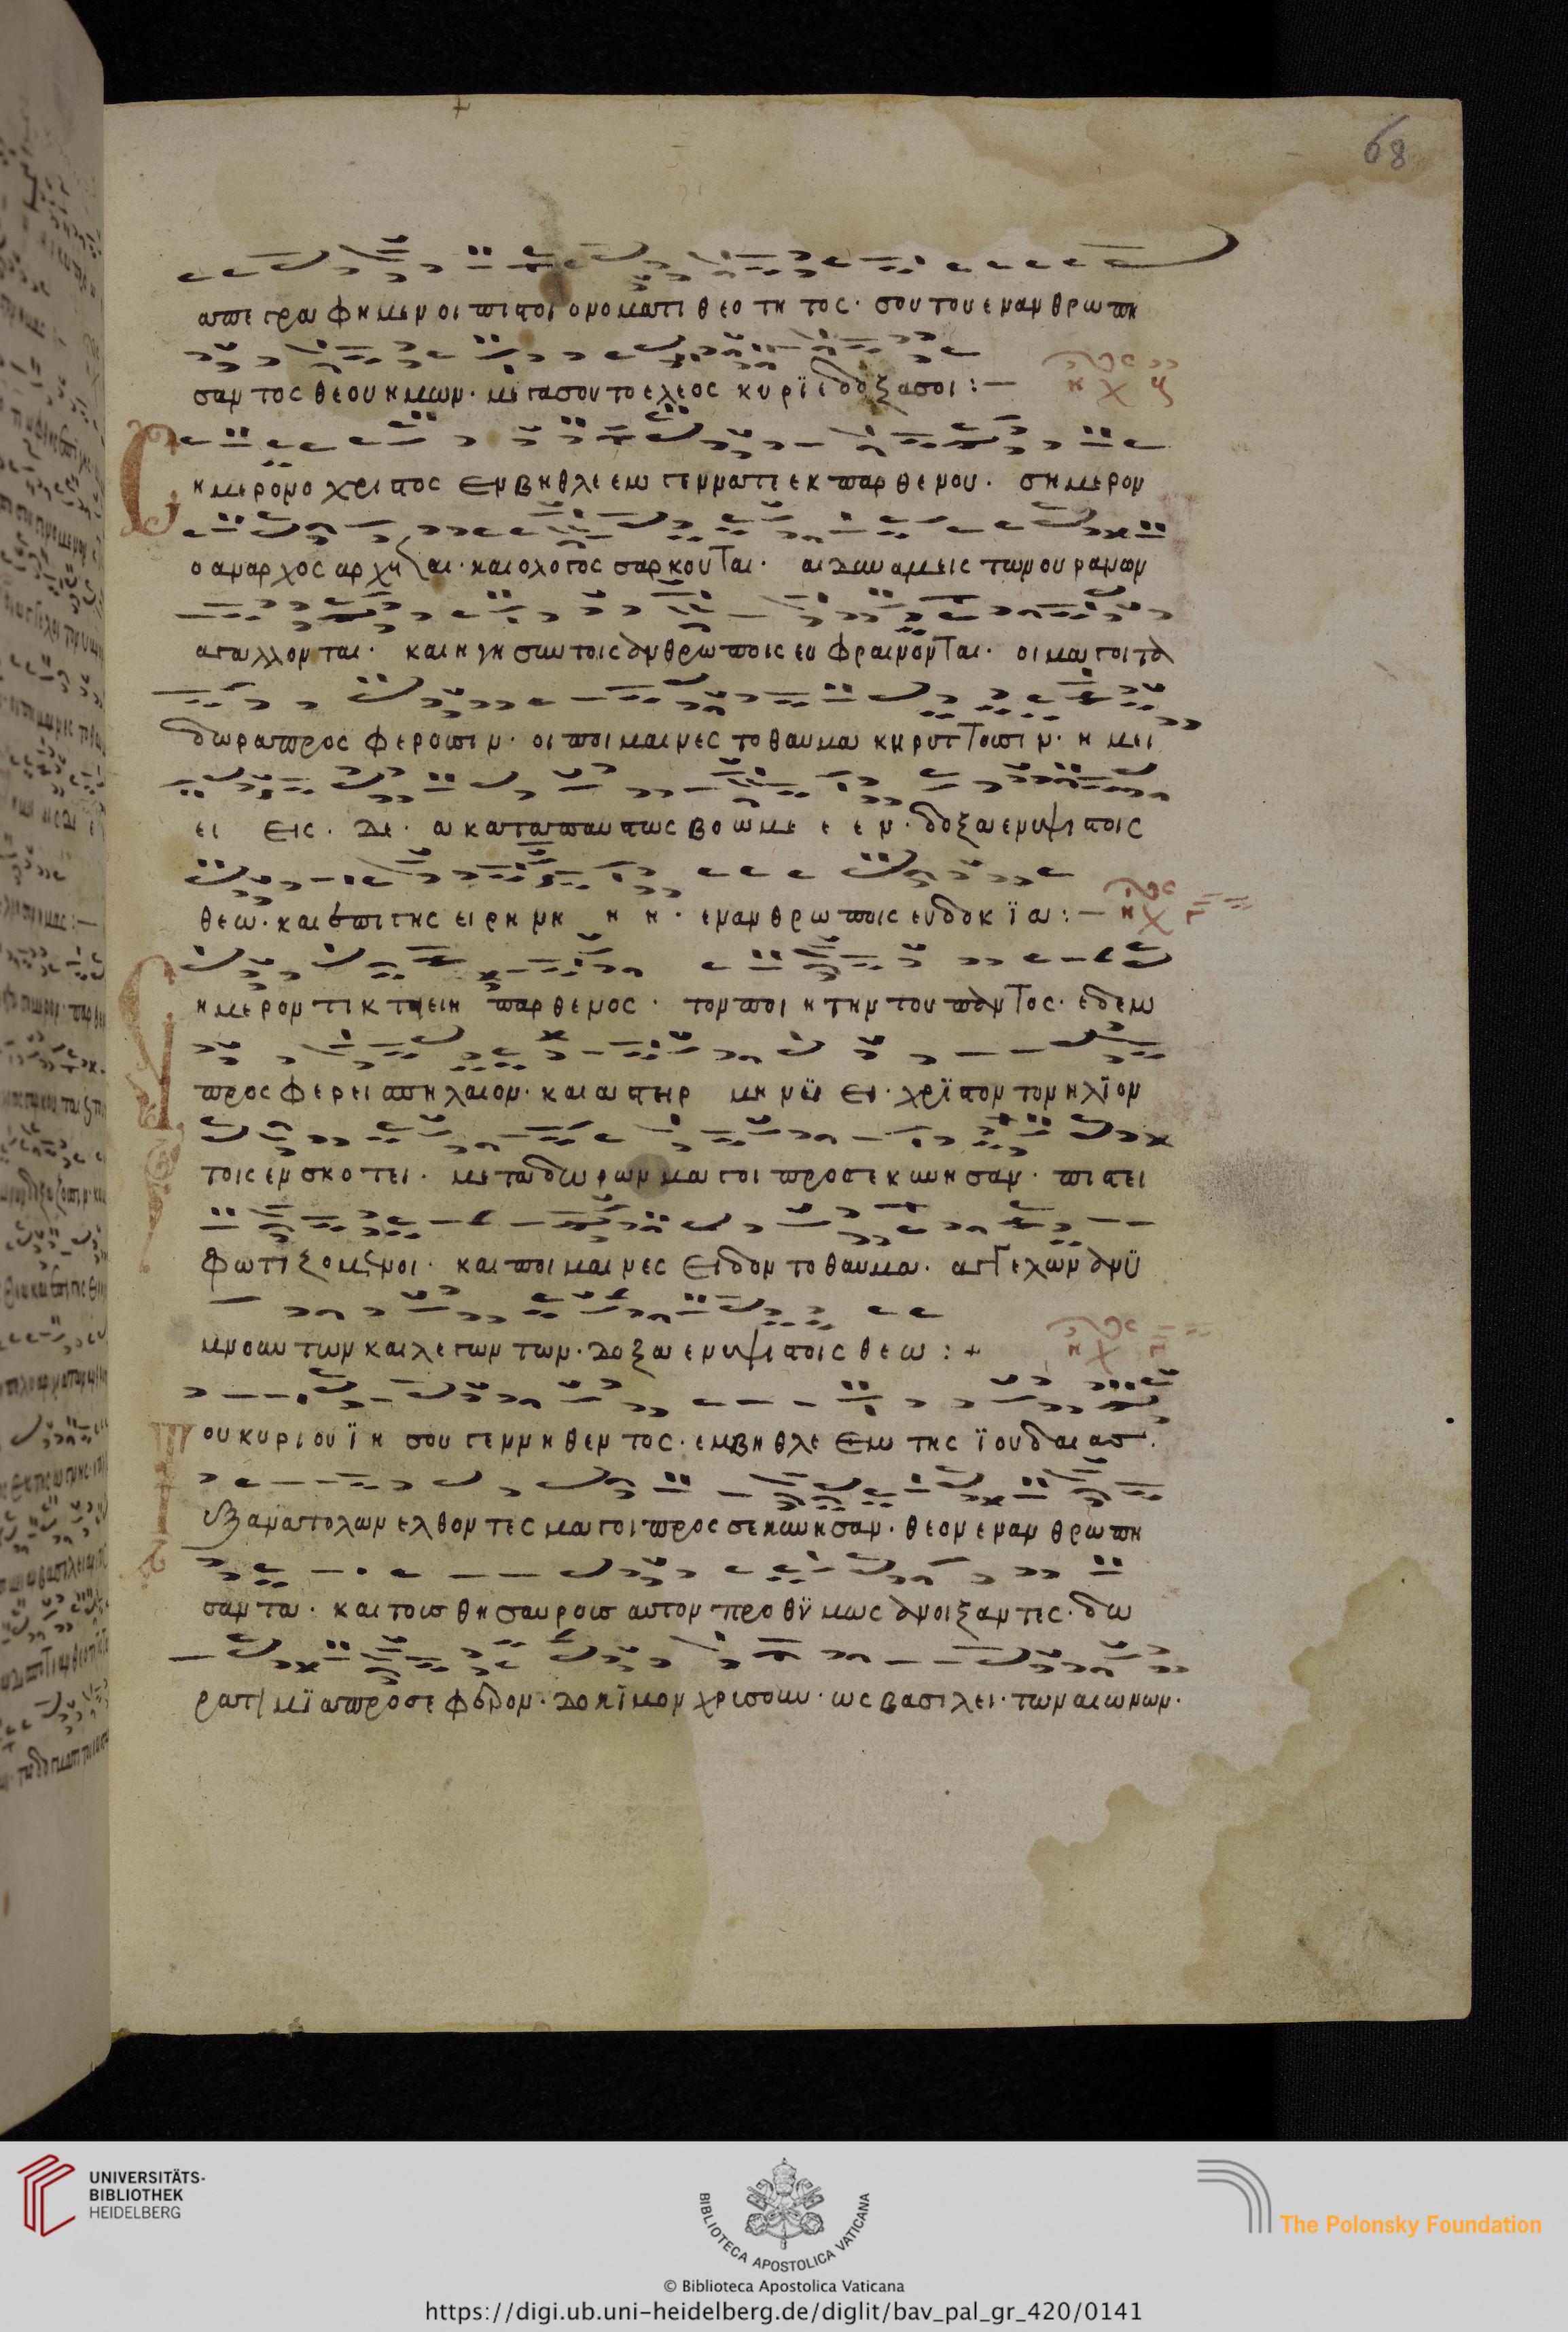 68
απεγραφημεν οι πιστοι ονοματι θεο τη τος · σου του εναν θρω πη
σαν τος θεου ημων · μεγα σου το ελεος κυριε δοξα σοι : —
Σημερον ο χριστος εν βηθλεεμ γεννατι εκ παρ θε νου · σημερον
ο αναρ χος αρ χη ται · και ο λογος σαρ κουται · αι δυναμεις των ου ρανων
αγαλλον ται · και η γη συν τοις ανθρω ποις ευ φραινονται · οι μαγοι τα
δωρα προς φερουσιν · οι ποι μαινες το θαυμα κηρυττουσιν · η μει
ει εις · δε · α κατα παυστως βο ωμε ε ε ν · δοξα εν υψιστοις
θεω · και επι της ει ρη νη η η · εν αν θρω ποις ευδοκϊα : — ηχ γ
Σημερον τικτη ει η παρ θενος · τον ποι η την του παντος · εδεμ
προς φερει σπηλαιον · και αστηρ μη νϋ ει · χρϊστον τον ηλϊον
τοις εν σκο τει · μετα δω ρων μα γοι προσε κυνησαν · πιστει
φωτιζομενοι · και ποι μαι νες ειδον το θαυμα · αγγελων ανϋ
μνουν των και λεγων των · δοξα εν υψιστοις θεω : +
Του κυριου ϊη σου γεννηθεν τος · εν βηθλε εμ της ϊουδαιας ·
εξ ανατολων ελθον τες μαγοι προς σεκυνησαν · θεον εναν θρω πη
σαν τα · και τους θη σαυρους αυτον προθϋμως ανοιξαν τες · δω
ρα τιμϊα προσε φερον · δοκϊμον χρισουν · ως βασιλει · των αιωνων ·
UNIVERSITÄTS-
BIBLIOTHEK
HEIDELBERG
BIBLIOTECA APOSTOLICA VATICANA
The Polonsky Foundation
© Biblioteca Apostolica Vaticana
https://digi.ub.uni-heidelberg.de/diglit/bav_pal_gr_420/0141